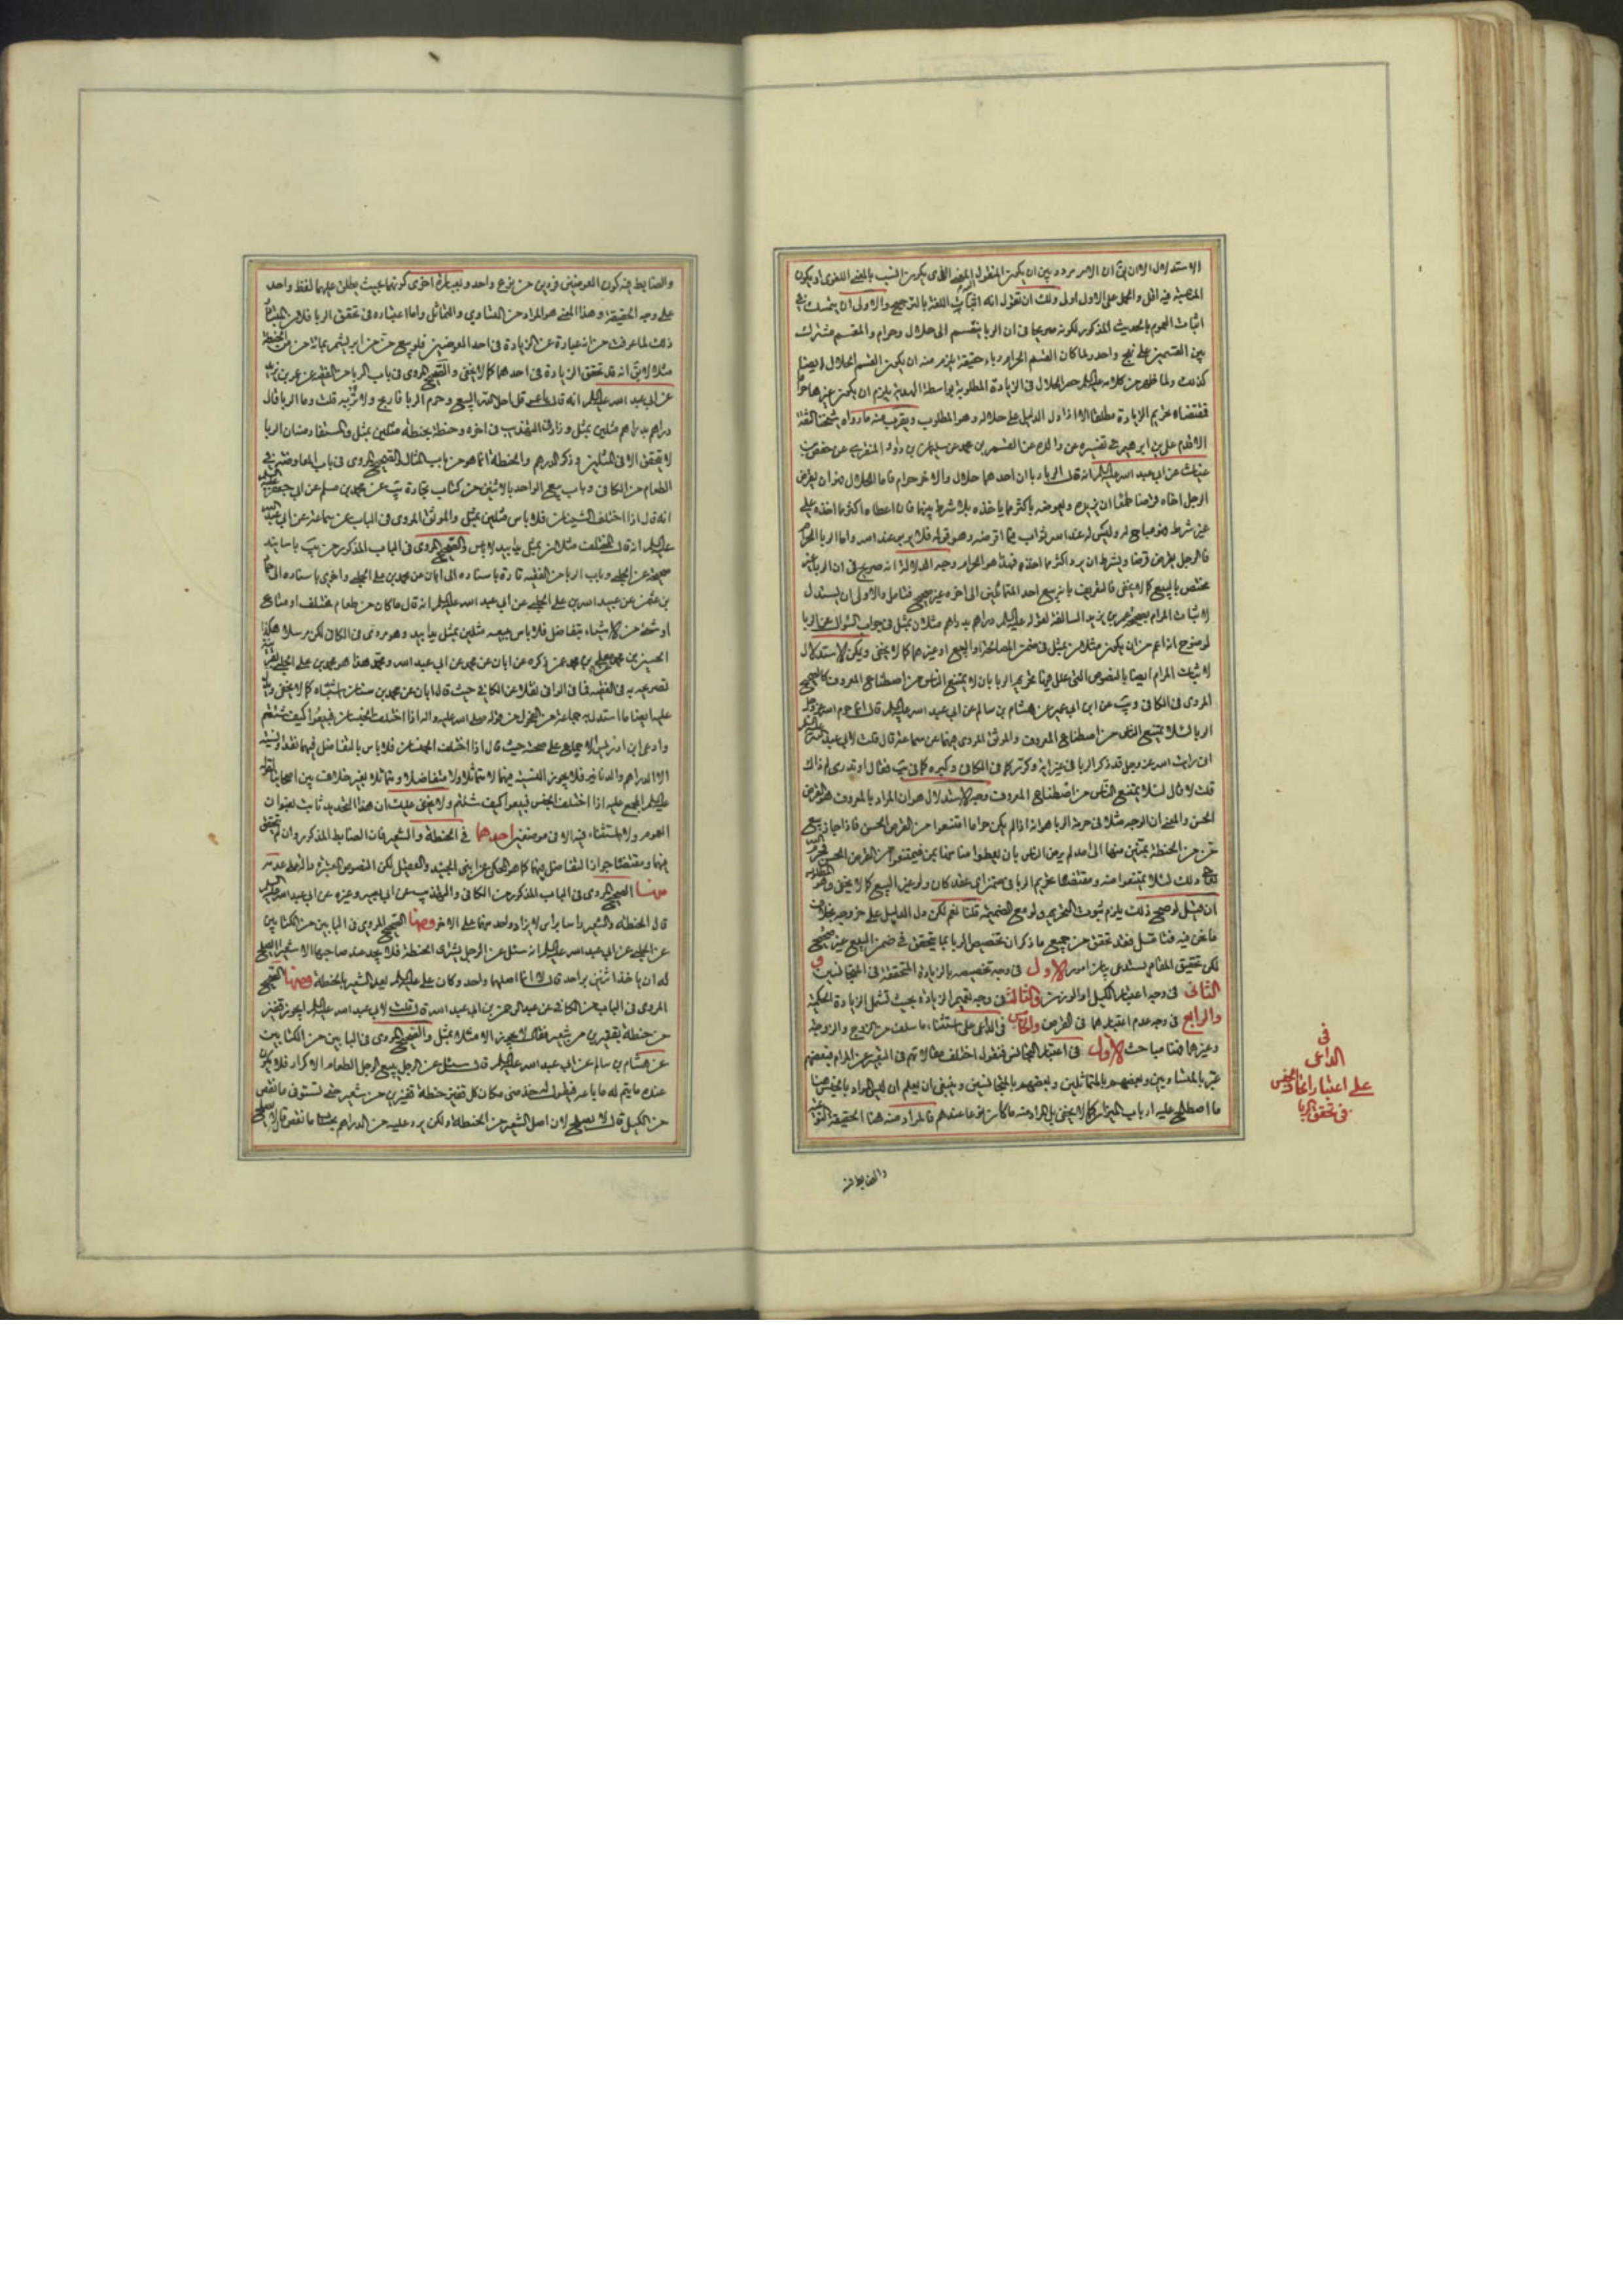 الاستدلال الا ان يق ان الامر مردد بين ان يكون المنقول اليه المعنى الذى يكون انسب بالمعنى اللغوى او يكون
المنصبة فيه اقل والحمل على الاول اولى ولك ان تقول انه اثبات اللغة بالترجيح والاولى ان يتمسك في
اثبات العموم بالحديث المذكور لكونه صريحا فى ان الربا ينقسم الى حلال وحرام والمقسم مشترك
بين القسمين على نهج واحد ولما كان القسم الحرام رباء حقيقة يلزم منه ان يكون القسم الحلال ايضا
كذلك ولما ظهر من كلامه عليه السلم حصر الحلال فى الزيادة المطلوبة بواسطة الهدية يلزم ان يكون غيرها حراما
فمقتضاه تحريم الزيادة مطلقا الا اذا دل الدليل على حلاله وهو المطلوب ويقرب منه ما رواه شيخنا الثقة
الاقدم على بن ابرهيم في تفسيره عن والده عن القسم بن محمد عن سليمن بن داود المنقرى عن حفص بن
غياث عن ابى عبد الله عليه السلم انه قال الربا ربا ان احدهما حلال والاخر حرام فاما الحلال فهو ان يقرض
الرجل اخاه قرضا طمعا ان يزيده ويعوضه باكثر مما ياخذه بلا شرط بينهما فان اعطاه اكثر مما اخذه على
غير شرط فهو مباح له وليس له عند الله ثواب فيما اقرضه وهو قوله فلا يربو عند الله واما الربا الحرام
فالرجل يقرض قرضا ويشترط ان يرد اكثر مما اخذه فهذا هو الحرام وجه الدلالة انه صريح فى ان الربا غير
مختص بالبيع كما لا يخفى فالتعريف بانه بيع احد المتماثلين الى اخره غير صحيح فتامل والاولى ان يستدل
لاثبات المرام بصحيحة عمر بن يزيد السالفة لقوله عليه السلم دراهم بدراهم مثلان بمثل فى جواب السؤال عن الربا
لوضوح انه اعم من ان يكون مثلان بمثل فى ضمن المصالحة او البيع او غيرهما كما لا يخفى ويمكن الاستدلال
لاثبات المرام ايضا بالنصوص التى علل فيها تحريم الربا بان لا يمتنع الناس من اصطناع المعروف كالصحيح
المروى فى الكافى ويب عن ابن ابى عمير عن هشام بن سالم عن ابى عبد الله عليه السلم قال انما حرم الله عز وجل
الربا لئلا يمتنع الناس من اصطناع المعروف والموثق المروى فيهما عن سماعة قال قلت لابى عبد الله عليه السلم
انى رايت الله عز وجل قد ذكر الربا فى غير اية وكرره كما فى الكافى وكبره كما فى يب فقال او تدرى لم ذاك
قلت لا قال لئلا يمتنع الناس من اصطناع المعروف وجه الاستدلال هو ان المراد بالمعروف هو القرض
الحسن والمعنى ان الوجه مثلا فى حرمة الربا هو انه اذا لم يكن حراما امتنعوا من القرض الحسن فاذا جاز بيع
من من الحنطة بمنين منها الى امد لم يرض الناس بان يعطوا منا من فيمتنعوا من القرض الحسن فحرم الله
تعالى ذلك لئلا يمتنعوا منه ومقتضاها تحريم الربا فى ضمن اى عقد كان ولو غير البيع كما لا يخفى وهو المطلوب
ان قيل لو صح ذلك يلزم ثبوت التحريم ولو مع الضميمة قلنا نعم لكن دل الدليل على خروجه بخلاف
ما نحن فيه فتامل فقد تحقق من جميع ما ذكر ان تخصيص الربا بما يتحقق فى ضمن البيع غير صحيح
لكن تحقيق المقام يستدعى بيان امور الاول فى وجه تخصيصه بالزيادة المتحققة فى المتجانسين و
الثانى فى وجه اعتبار الكيل او الوزن والثالث فى وجه تعميم الزيادة بحيث تشمل الزيادة الحكمية
والرابع فى وجه عدم اعتبارهما فى القرض والخامس فى الداعى على استثناء ما سلف من الزوج والزوجة
وغيرهما فهنا مباحث الاول فى اعتبار التجانس فنقول اختلف مقالاتهم فى التعبير عن المرام فبعضهم
عبر بالمتساويين وبعضهم بالمتماثلين وبعضهم بالمتجانسين وينبغى ان يعلم ان ليس المراد بالجنس هنا
ما اصطلح عليه ارباب الميزان كما لا يخفى بل المراد منه ما كان نوعا عندهم فالمراد منه هنا الحقيقة النوعية
والضابط فيه
فى
الداعى
على اعتبار اتحاد الجنس
فى تحقق الربا
والضابط فيه كون العوضين فردين من نوع واحد وبعبارة اخرى كونهما بحيث يطلق عليهما لفظ واحد
على وجه الحقيقة وهذا المعنى هو المراد من التساوي والتماثل واما اعتباره فى تحقق الربا فلان
ذلك لما عرفت من انه عبارة عن الزيادة فى احد العوضين فلو بيع من من ابريشم بمائة من من الحنطة
مثلا لا يق انه قد تحقق الزيادة فى احدهما كما لا يخفى والصحيح المروى فى باب الربا من الفقيه عن عمر بن يزيد
عن ابى عبد الله عليه السلم انه قال يا عمر قد احل الله البيع وحرم الربا فاربح ولا تربه قلت وما الربا قال
دراهم بدراهم مثلين بمثل وزاد فى التهذيب فى اخره وحنطة بحنطة مثلين بمثل والمستفاد منه ان الربا
لا يتحقق الا فى المثلين وذكر الدرهم والحنطة انما هو من باب المثال والصحيح المروى فى باب المعاوضة في
الطعام من الكافى وباب بيع الواحد بالاثنين من كتاب تجارة يب عن محمد بن مسلم عن ابى جعفر عليه السلم
انه قال اذا اختلف الشيئان فلا باس مثلين بمثل والموثق المروى فى الباب عن سماعة عن ابى عبد الله
عليه السلم انه قال المختلف مثلان بمثل يدا بيد لا باس والصحيح المروى فى الباب المذكور من يب باسانيد
صحيحة عن الحلبى وباب الربا من الفقيه تارة باسناده الى ابان عن محمد بن على الحلبى واخرى باسناده الى حماد
بن عثمن عن عبيد الله بن على الحلبى عن ابى عبد الله عليه السلم انه قال ما كان من طعام مختلف او متاع
او شئ من الاشياء يتفاضل فلا باس ببيعه مثلين بمثل يدا بيد وهو مروى فى الكافى لكن مرسلا هكذا
الحسين بن محمد عن معلى بن محمد عمن ذكره عن ابان عن محمد عن ابى عبد الله ومحمد هذا هو محمد بن على الحلبى بقرينة
تصريحه به فى الفقيه فما فى الوافى نقلا عن الكافي حيث قال ابان عن محمد بن سنان اشتباه كما لا يخفى ويدل
عليه ايضا ما استدل به جماعة من الفحول من قوله صلى الله عليه واله اذا اختلف الجنسان فبيعوا كيف شئتم
وادعى ابن ادريس الاجماع على صحته حيث قال اذا اختلف الجنسان فلا باس بالتفاضل فيهما نقدا ونسيئة
الا الدراهم والدنانير فلا يجوز النسيئة فيهما لا متماثلا ولا متفاضلا ومتماثلا بغير خلاف بين اصحابنا لقوله
عليه السلم المجمع عليه اذا اختلف الجنس فبيعوا كيف شئتم ولا يخفى عليك ان هذا التحديد ثابت بعنوان
العموم ولا استثناء فيه الا فى موضعين احدهما في الحنطة والشعير فان الضابط المذكور وان لم يتحقق
فيهما ومقتضاه جواز التفاضل فيهما كما هو المحكى عن ابنى الجنيد والعقيل لكن النصوص المعتبرة دالة على عدمه
منها الصحيح المروى فى الباب المذكور من الكافى والتهذيب عن ابى بصير وغيره عن ابى عبد الله عليه السلم
قال الحنطة والشعير راسا براس لا يزاد واحد منهما على الاخر ومنها الصحيح المروى فى البابين من الكتابين
عن الحلبى عن ابى عبد الله عليه السلم انه سئل عن الرجل يشترى الحنطة فلا يجد عند صاحبها الا شعيرا ايصلح
له ان ياخذ اثنين بواحد قال لا انما اصلهما واحد وكان على عليه السلم يعد الشعير بالحنطة ومنها الصحيح
المروى فى الباب من الكافى عن عبد الرحمن بن ابى عبد الله قال قلت لابى عبد الله عليه السلم ايجوز قفيز
من حنطة بقفيزين من شعير فقال لا يجوز الا مثلا بمثل والصحيح المروى فى البابين من الكتابين
عن هشام بن سالم عن ابى عبد الله عليه السلم قال سئل عن الرجل يبيع الرجل الطعام الاكرار فلا يكون
عنده ما يتم له ما باعه فيقول له خذ منى مكان كل قفيز حنطة قفيزين من شعير حتى تستوفى ما نقص
من الكيل قال لا يصلح لان اصل الشعير من الحنطة ولكن يرد عليه من الدراهم بحساب ما نقص